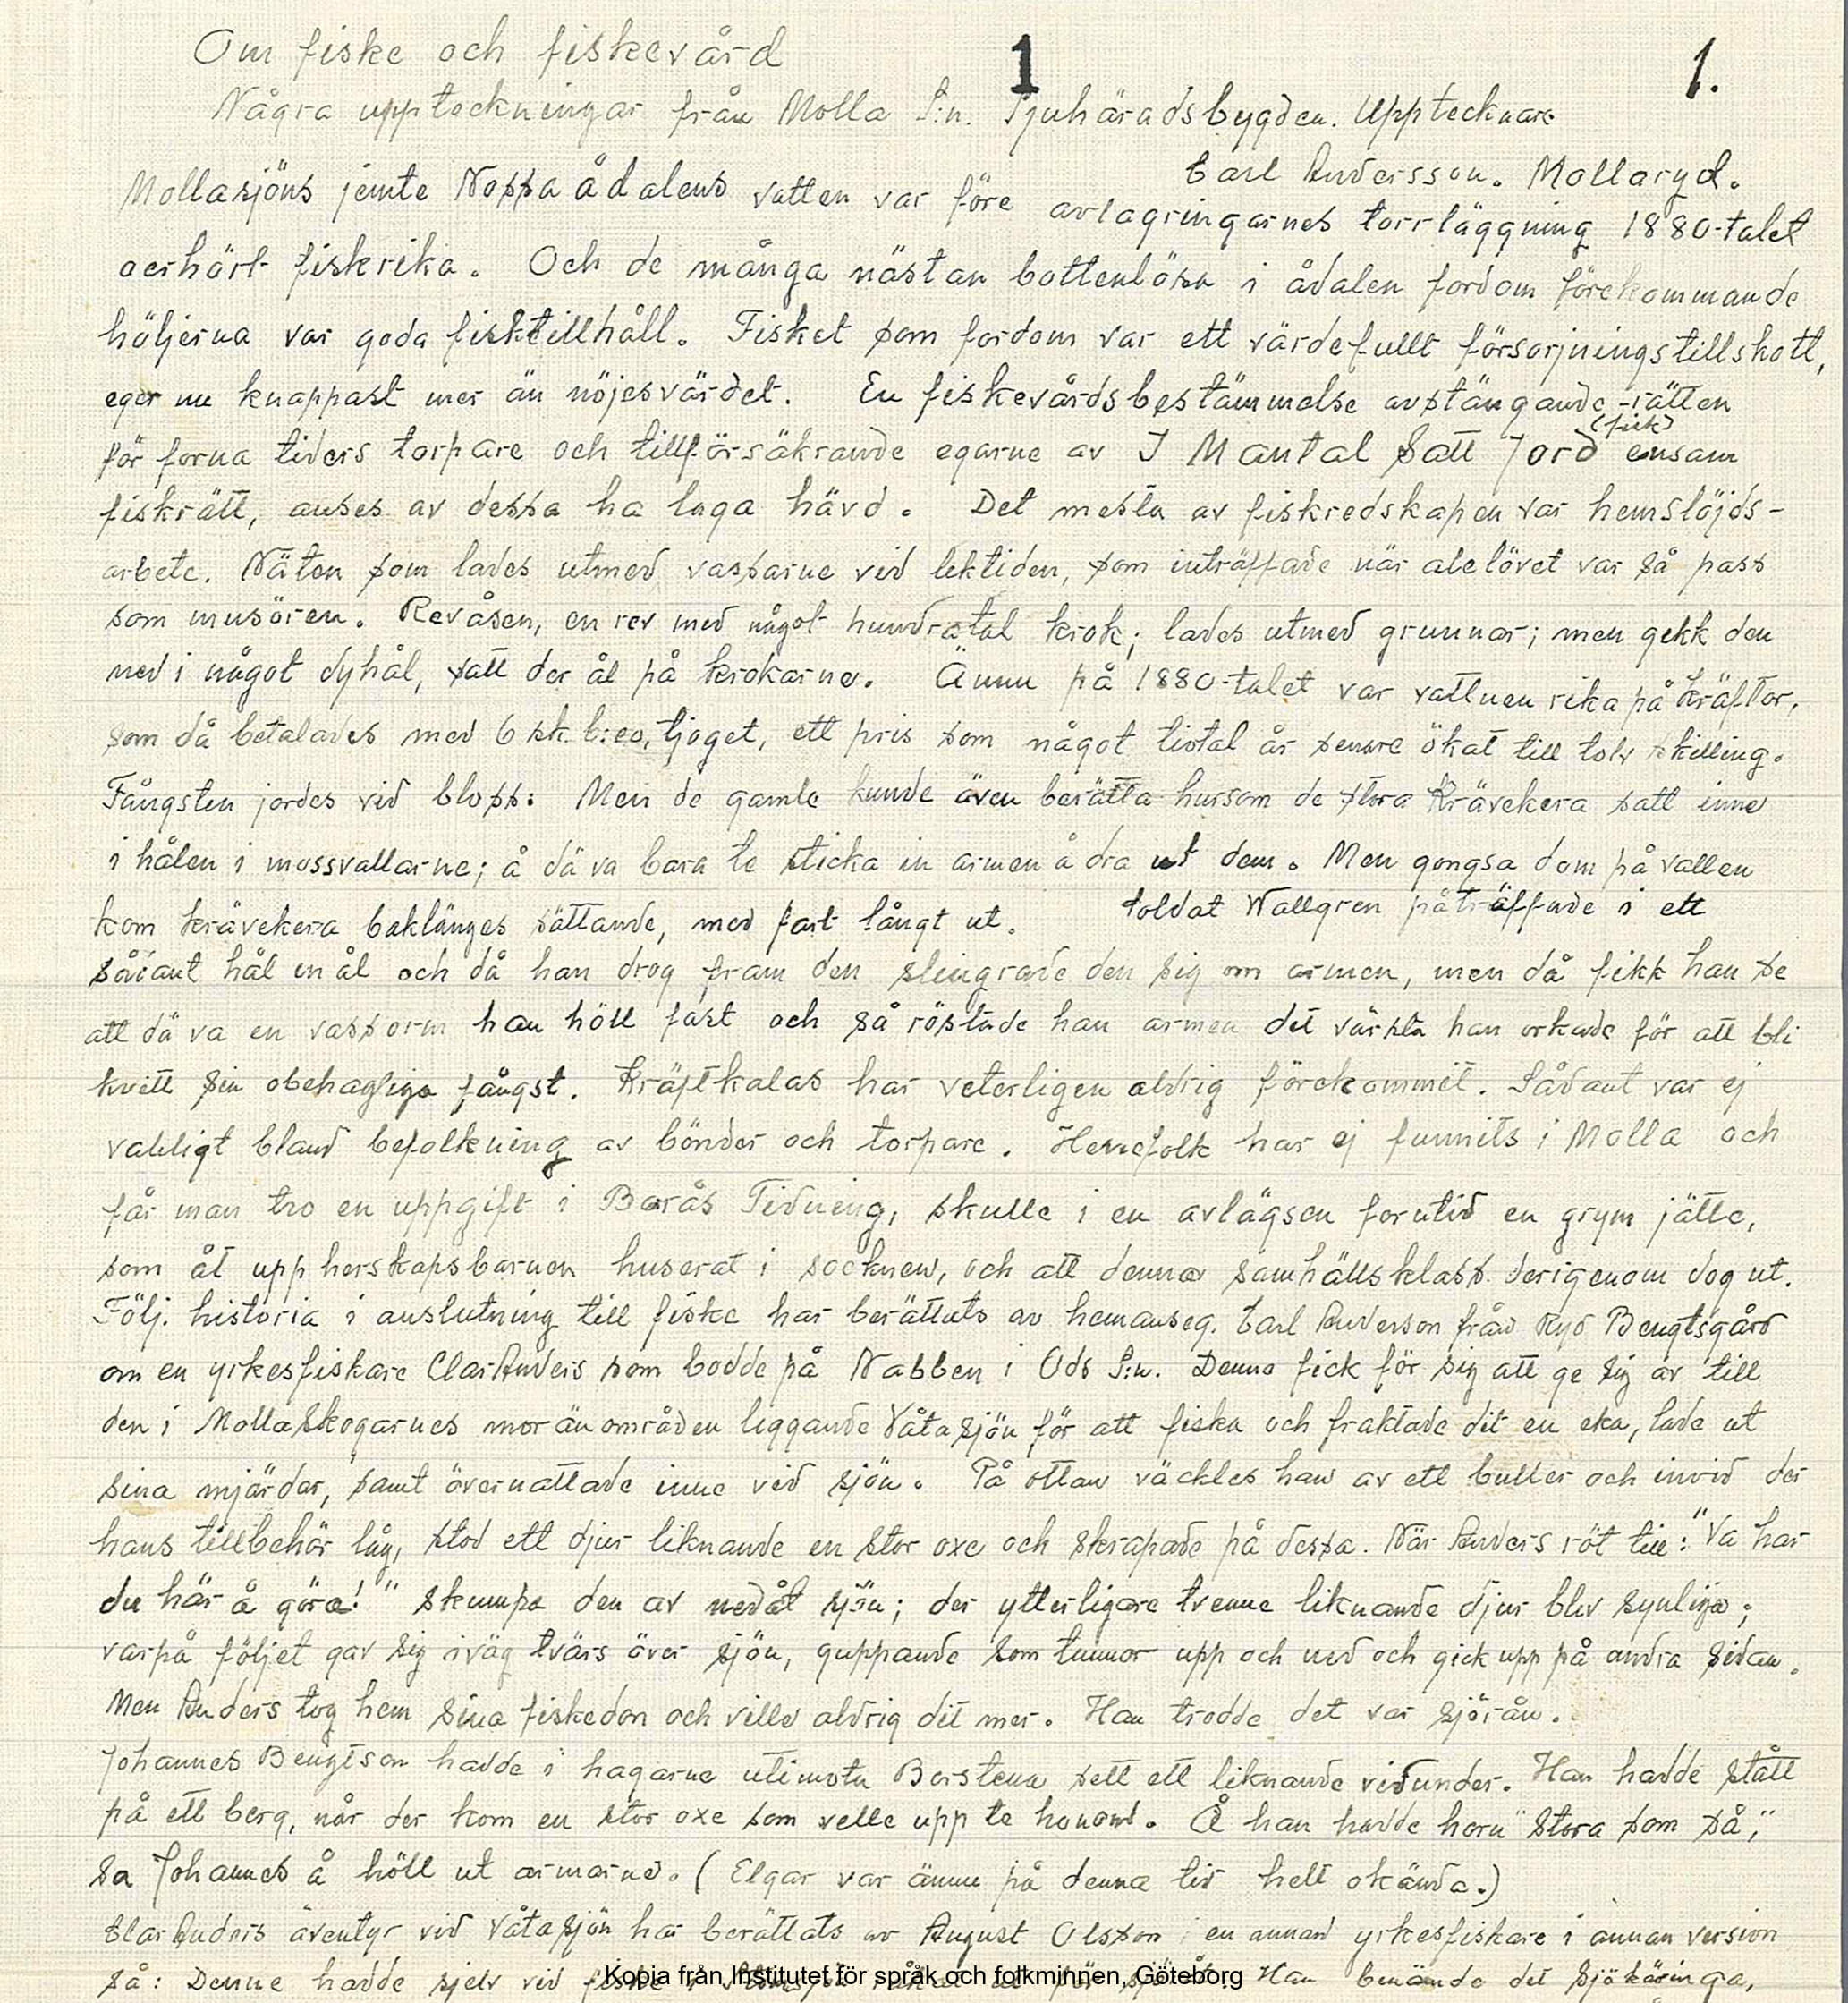 Om fiske och fiskevård 1 1.
Några uppteckningar från Molla S:n. Sjuhäradsbygden. Upptecknare
Carl Andersson. Mollaryd.
Mollasjöns jemte Nossa ådalens vatten var före avlagringarnes torrläggning 1880-talet
oerhört fiskrika. Och de många nästan bottenlösa i ådalen fordom förekommande
höljerna var goda fisktillhåll. Fisket som fordom var ett värdefullt försörjningstillskott,
eger nu knappast mer än nöjesvärdet. En fiskevårdsbestämmelse avstängande rätten
för forna tiders torpare och tillförsäkrande egarne av I Mantal Satt Jord (fisk) ensam
fiskrätt, anses av dessa ha laga hävd. Det mesta av fiskredskapen var hemslöjds-
arbete. Näten som lades utmed vassarne vid lektiden, som inträffade när alelövet var så pass
som musören. Revåsen, en rev med något hundratal krok; lades utmed grunnar; men gekk den
ned i något dyhål, satt der ål på krokarne. Ännu på 1880-talet var vattnen rika på Kräftor,
som då betalades med 6 sk. b:co, tjoget, ett pris som något tiotal år senare ökat till tolv skilling.
Fångsten jordes vid bloss: Men de gamle kunde även berätta hursom de stora Krävekera satt inne
i hålen i mossvallarne; å dä va bara te sticka in armen å dra ut dem. Men gongsa dom på vallen
kom krävekera baklänges sättande, med fart långt ut. Soldat Wallgren påträffade i ett
sådant hål en ål och då han drog fram den slingrade den sig om armen, men då fikk han se
att dä va en vassorm han höll fast och så röstade han armen det värsta han orkade för att bli
kvitt sin obehagliga fångst. Kräftkalas har veterligen aldrig förekommit. Sådant var ej
vanligt bland befolkning av bönder och torpare. Herrefolk har ej funnits i Molla och
får man tro en uppgift i Borås Tidning, skulle i en avlägsen forntid en grym jätte,
som åt upp herskapsbarnen huserat i socknen, och att denna samhällsklass derigenom dog ut.
Följ. historia i anslutning till fiske har berättats av hemanseg. Carl Anderson från Ryd Bengtsgård
om en yrkesfiskare ClarAnders som bodde på Nabben i Ods S:n. Denne fick för sig att ge sig av till
den i MollaSkogarnes moränområden liggande Våtasjön för att fiska och fraktade dit en eka, lade ut
sina mjärdar, samt övernattade inne vid sjön. På ottan väcktes han av ett buller och invid der
hans tillbehör låg, stod ett djur liknande en stor oxe och skrapade på dessa. När Anders röt till: "Va har
du här å göra!" skumpa den av nedåt sjön; der ytterligare trenne liknande djur blev synliga;
varpå följet gav sig iväg tvärs över sjön, guppande som tunnor upp och ned och gick upp på andra sidan.
Men Anders tog hem sina fiskedon och ville aldrig dit mer. Han trodde det var sjörån.
Johannes Bengtson hade i hagarne utimota Borstena sett ett liknande vidunder. Han hadde stått
på ett berg, når der kom en stor oxe som velle upp te honom. Å han hadde horn "stora som så",
sa Johannes å höll ut armarne. (Elgar var ännu på denna tid helt okända.)
Clar Anders äventyr vid Våtasjön har berättats av August Olsson en annan yrkesfiskare i annan version
så: Denne hadde sjelv vid fiske i Han benämde det sjökäringa,
Kopia från Institutet för språk och folkminnen, Göteborg